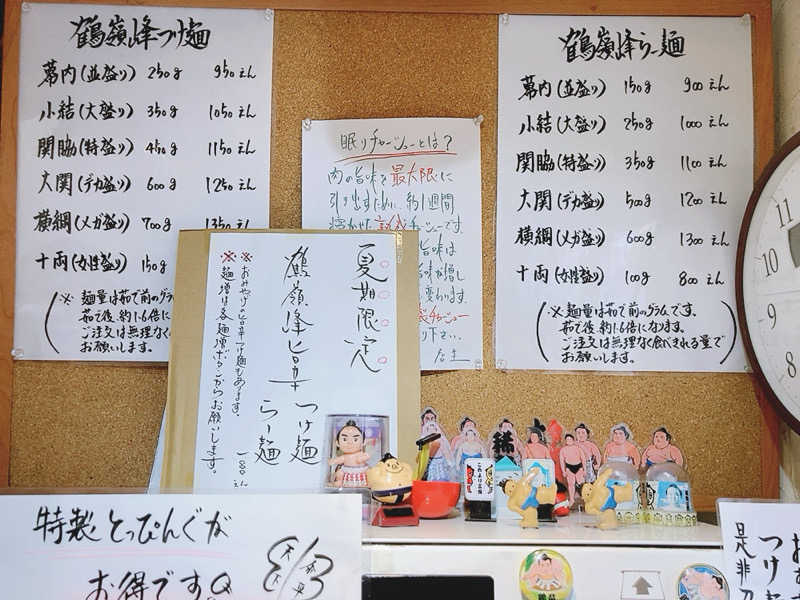 鶴嶺峰つけ麺
幕内(並盛り) 250g 950えん
小結(大盛り) 350g 1050えん
関脇(特盛り) 450g 1150えん
大関(デカ盛り) 600g 1250えん
横綱(メガ盛り) 700g 1350えん
十両(女性盛り) 150g
(※麺量は茹で前のグラム
茹で後、約1.6倍に
ご注文は無理なく
お願いします。
眠りチャーシューとは?
肉の旨味を最大限に
引き出すために、約1週間
熟成チャーシューです。
旨味は
変わります。
店主
夏期限定
鶴嶺峰旨辛つけ麺
らー麺
※おみやげの旨辛つけ麺もあります。
※麺増は各麺増ボタンからお願いします。
鶴嶺峰らー麺
幕内(並盛り) 150g 900えん
小結(大盛り) 250g 1000えん
関脇(特盛り) 350g 1100えん
大関(デカ盛り) 500g 1200えん
横綱(メガ盛り) 600g 1300えん
十両(女性盛り) 100g 800えん
(※麺量は茹で前のグラムです。
茹で後、約1.6倍になります。
ご注文は無理なく食べきれる量で
お願いします。)
11
10
9
8
特製とっぴんぐが
お得です
つけ
是非